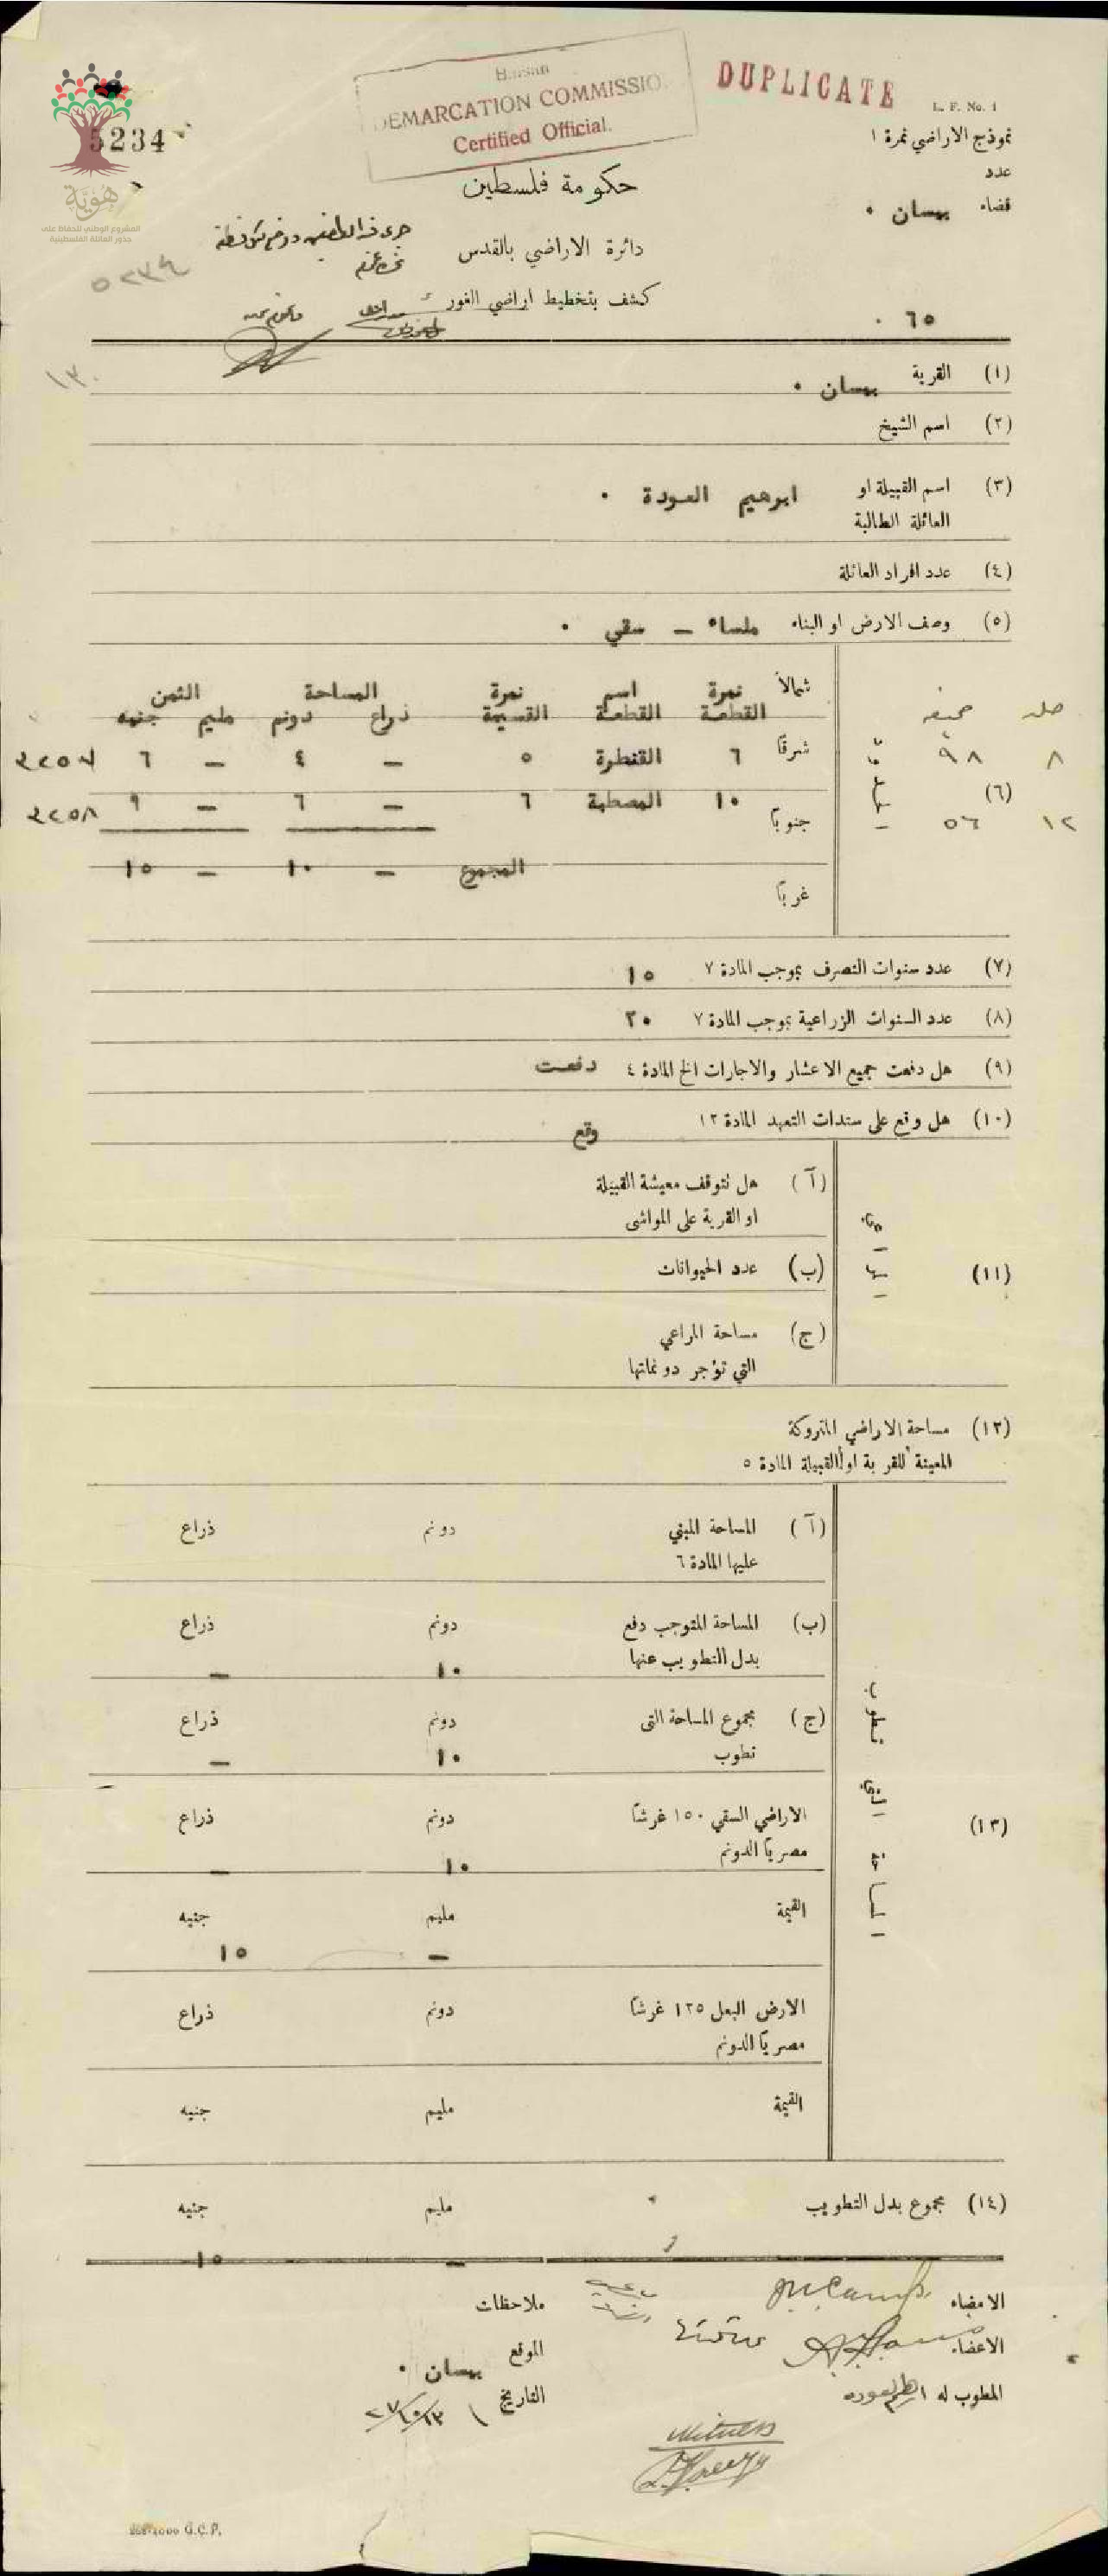 Baisan
DEMARCATION COMMISSIO
Certified Official.
DUPLICATE
L. F. No. 1
نموذج الاراضي نمرة ١
5234
عدد
حكومة فلسطين
قضاء بيسان ٠
هويّة
المشروع الوطني للحفاظ على
جذور العائلة الفلسطينية
دائرة الاراضي بالقدس
٥٢٣٤
كشف بتخطيط اراضي الغور
٦٥ ٠
١٣٠
(١) القرية بيسان ٠
(٢) اسم الشيخ
(٣) اسم القبيلة او ابرهيم العودة ٠
العائلة الطالبة
(٤) عدد افراد العائلة
(٥) وصف الارض او البناء ملساء – سقي ٠
شمالاً نمرة اسم نمرة المساحة الثمن
القطعة القطعة القسيمة ذراع دونم مليم جنيه
جلد صحيفه
٨ ٩٨ شرقاً ٦ القنطرة ٥ – ٤ – ٦ ٣٢٥٧
(٦)
١٢ ٥٦ جنوباً ١٠ المصطبة ٦ – ٦ – ٩ ٣٢٥٨
المجموع – ١٠ – ١٥
غرباً
(٧) عدد سنوات التصرف بموجب المادة ٧ ١٥
(٨) عدد السنوات الزراعية بموجب المادة ٧ ٢٠
(٩) هل دفعت جميع الاعشار والاجارات الخ المادة ٤ دفعت
(١٠) هل وقع على سندات التعهد المادة ١٢ وقع
(١١)
(آ) هل تتوقف معيشة القبيلة
او القرية على المواشي
(ب) عدد الحيوانات
(ج) مساحة المراعي
التي تؤجر دونماتها
(١٢) مساحة الاراضي المتروكة
المعينة للقرية او القبيلة المادة ٥
(آ) المساحة المبني دونم ذراع
عليها المادة ٦
(ب) المساحة المتوجب دفع دونم ذراع
بدل التطويب عنها ١٠ –
(ج) مجموع المساحة التى دونم ذراع
تطوب ١٠ –
(١٣)
الاراضي السقي ١٥٠ غرشاً دونم ذراع
مصرياً الدونم ١٠ –
القيمة مليم جنيه
– ١٥
الارض البعل ١٢٥ غرشاً دونم ذراع
مصرياً الدونم
القيمة مليم جنيه
(١٤) مجموع بدل التطويب مليم جنيه
– ١٥
الامضاء ملاحظات
الاعضاء
الموقع بيسان ٠
المطوب له ابراهيم العوده
التاريخ
Witness
G.C.P.